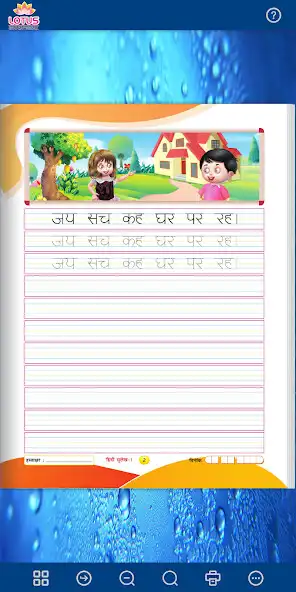 LOTUS
जय सच कह घर पर रह।
जय सच कह घर पर रह।
जय सच कह घर पर रह।
हस्ताक्षर : हिंदी सुलेख-1 2 दिनांक